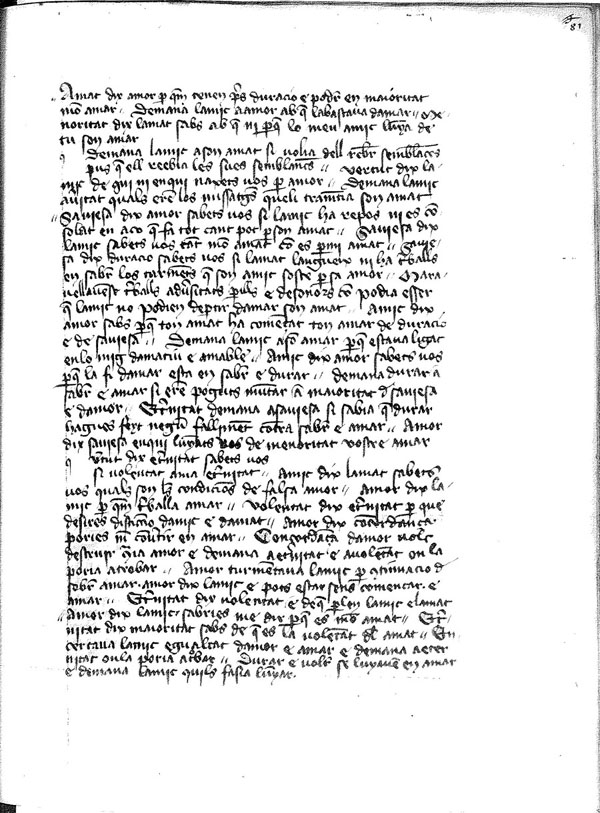 81
Amat dix amor p qm tenen pes duracio e poder en maioritat
mō amar ·// Demana lamic a amor ab q labastava damar ·//· Me
noritat dix lamat sabs ab q ni pq lo meu amic luya de
tu son amar
Demana lamic a son amat si volia dell rebr semblāces
pus q ell reebia les sues semblances ·//· Vertut dix la
mic de qui ni en qui naxets vos p amor ·// Demana lamic
a vitat quals eren los missatgs queli trametia son amat
Saviesa dix amor sabets vos si lamic ha repos ni es cō
solat en aco q fa tot cant pot p son amat ·// Saviesa dix
lamic sabets vos tāt mō amat cō es p mi amat ·// Savie
sa dix duracio sabets vos si lamat langueix ni ha trballs
en sabr los turmēts q son amic soste p sa amor ·// Mara
vellavest trballs adusitats pills e desonors cō podia esser
q lamic no podien deptir damar son amat ·// Amic dix
amor sabs pq ton amat ha comētat ton amar de duracio
e de saviesa ·// Demana lamic a sō amat pq estava ligat
en lo mig damatiu e amable ·// Amic dix amor sabets vos
pq la fi damar esta en sabr e durar ·// demana durar a
sabr e amar si eren poguts mutar a maioritat d saviesa
e damor ·// Etrnitat demana a saviesa si sabia q durar
hagues fet negu falliment contra sabr e amar ·// Amor
dix saviesa en qui luyats vos de menoritat vostre amar
Vtut dix etrnitat sabets vos
si volentat ama etrnitat ·// Amic dix lamat sabets
vos quals son les condicions de falsa amor ·// Amor dix la
mic p qm trballa amar ·// Volentat dix etrnitat p que
desires distincio damic e damat ·// Amor dix cōcordança
pories m cōvtir en amar ·// Concordāça damor volc
destruir ira amor e demana a etrnitat e a volētat on la
poria atrobar ·// Amor turmentava lamic p cōtinuacio d
sobre amar. amor dix lamic e pots estar sens comencar. e
amar ·// Etrnitat dix volentat e de q plen lamic e lamat
Amor dix lamic sabries me dir pq es mō amat ·// Etr
nitat dix maioritat sabs de q es la volētat del amat ·// En
cercava lamic egualtat damor e amar e demana a eter
nitat on la poria atrobar ·// Durar e volr se luyaven en amar
e demana lamic quils fasia luyar.